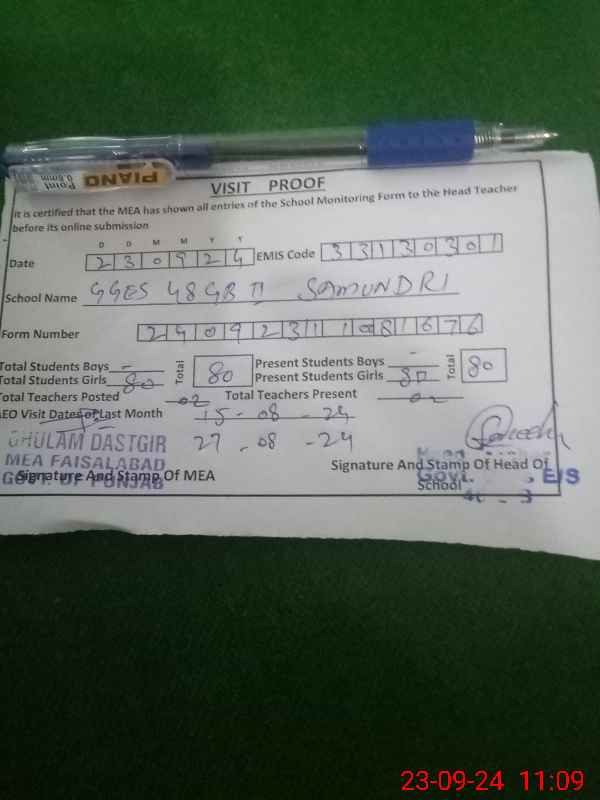 PIANO
Point
0.8mm
VISIT PROOF
It is certified that the MEA has shown all entries of the School Monitoring Form to the Head Teacher
before its online submission
D D M M Y Y
Date 230924 EMIS Code 33130301
School Name GGES 48 GB II SAMUNDRI
Form Number
Total Students Boys - Total 80 Present Students Boys - Total 80
Total Students Girls 80 Present Students Girls 80
Total Teachers Posted 02 Total Teachers Present 02
AEO Visit Dates of Last Month 15-08-24
27-08-24
GHULAM DASTGIR
MEA FAISALABAD
GOVT. OF PUNJAB
Signature And Stamp Of MEA
Signature And Stamp Of Head Of
School
Govt. E/S
23-09-24 11:09